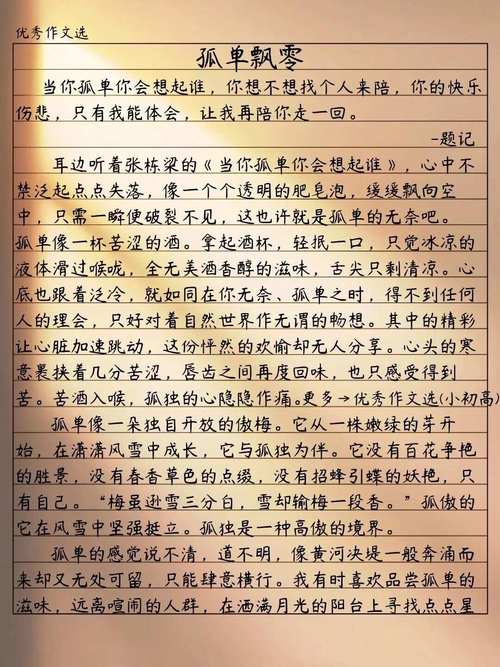 优秀作文选
孤单飘零
当你孤单你会想起谁，你想不想找个人来陪，你的快乐
伤悲，只有我能体会，让我再陪你走一回。
-题记
耳边听着张栋梁的《当你孤单你会想起谁》，心中不
禁泛起点点失落，像一个个透明的肥皂泡，缓缓飘向空
中，只需一瞬便破裂不见，这也许就是孤单的无奈吧。
孤单像一杯苦涩的酒。拿起酒杯，轻抿一口，只觉冰凉的
液体滑过喉咙，全无美酒香醇的滋味，舌尖只剩清凉。心
底也跟着泛冷，就如同在你无奈、孤单之时，得不到任何
人的理会，只好对着自然世界作无谓的畅想。其中的精彩
让心脏加速跳动，这份怦然的欢愉却无人分享。心头的寒
意裹挟着几分苦涩，唇齿之间再度回味，也只感受得到
苦。苦酒入喉，孤独的心隐隐作痛。更多→优秀作文选(小初高)
孤单像一朵独自开放的傲梅。它从一株嫩绿的芽开
始，在潇潇风雪中成长，它与孤独为伴。它没有百花争艳
的胜景，没有春香草色的点缀，没有招蜂引蝶的妖艳，只
有自己。“梅虽逊雪三分白，雪却输梅一段香。”孤傲的
它在风雪中坚强挺立。孤独是一种高傲的境界。
孤单的感觉说不清，道不明，像黄河决堤一般奔涌而
来却又无处可留，只能肆意横行。我有时喜欢品尝孤单的
滋味，远离喧闹的人群，在洒满月光的阳台上寻找点点星